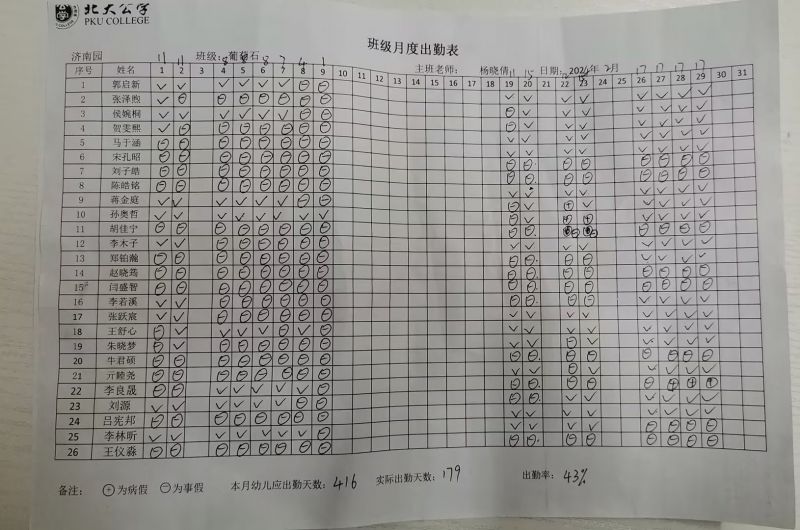 北大公学
PKU COLLEGE
班级月度出勤表
济南园 班级：葡萄石 主班老师： 杨晓倩 日期：2024年2月
11 11 8 8 8 7 4 1 11 15 17 17 17 17
序号 姓名 1 2 3 4 5 6 7 8 9 10 11 12 13 14 15 16 17 18 19 20 21 22 23 24 25 26 27 28 29 30 31
1 郭启新
2 张泽煦
3 侯婉桐
4 贺雯熙
5 马于涵
6 宋孔昭
7 刘子皓
8 陈皓铭
9 蒋金庭
10 孙奥哲
11 胡佳宁
12 李木子
13 郑铂瀚
14 赵晓筠
15 闫盛智
16 李若溪
17 张跃宸
18 王舒心
19 朱晓梦
20 牛君硕
21 亓睦尧
22 李良晟
23 刘源
24 吕宪邦
25 李林昕
26 王仪淼
备注： ⊕为病假 ⊖为事假 本月幼儿应出勤天数：416 实际出勤天数：179 出勤率：43%